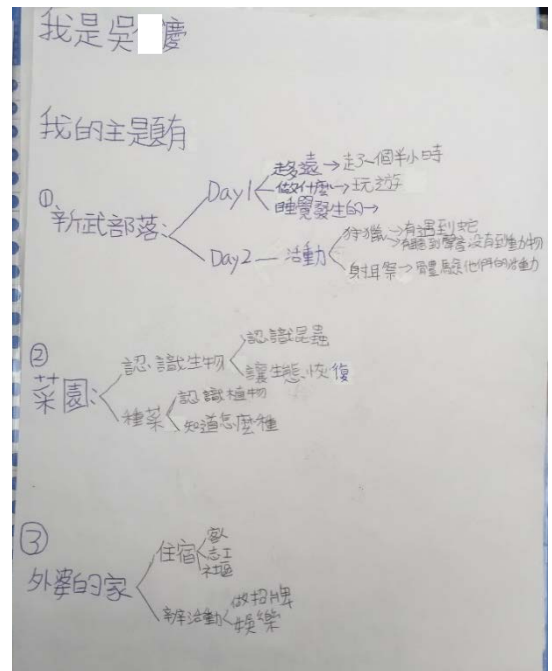 我是吳 慶
我的主題有
①新武部落:
Day1
越遠→走了一個半小時
做什麼→玩遊
睡覺發生的→
Day2—活動
狩獵→有遇到蛇
→有聽到聲音沒有到動物
射耳祭→體驗他們的活動
②菜園:
認識生物
認識昆蟲
讓生態恢復
種菜
認識植物
知道怎麼種
③外婆的家
住宿
志工
社區
辦活動
做招牌
娛樂